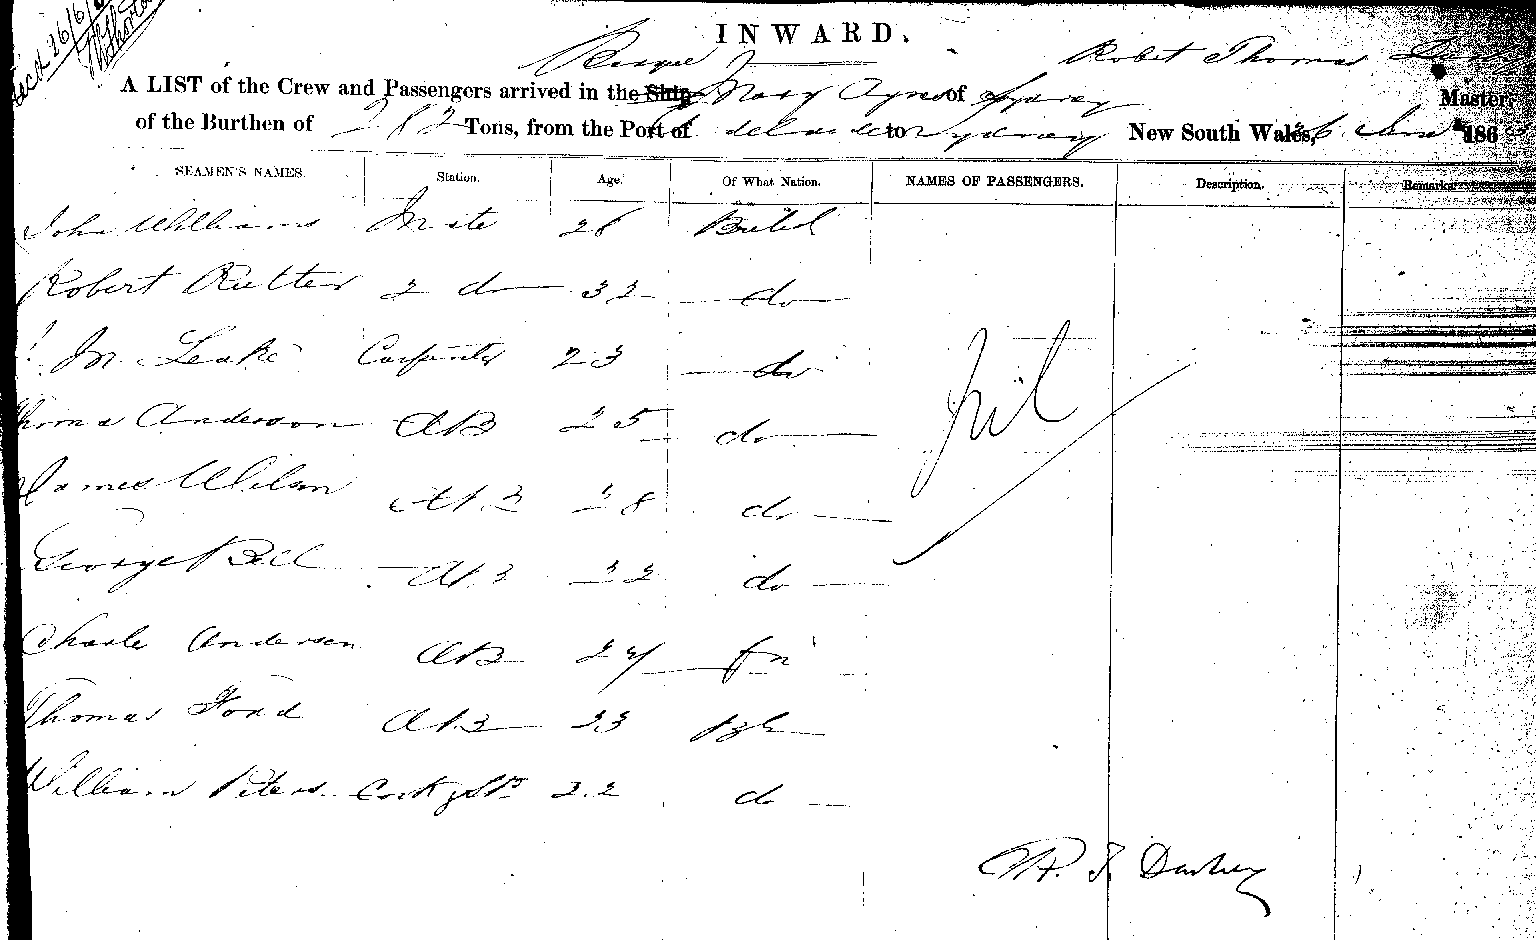 Recd 26/6/
INWARD.
Barque Robert Thomas
A LIST of the Crew and Passengers arrived in the Ship Mary Agnes of Sydney Master,
of the Burthen of 282 Tons, from the Port of Adelaide to Sydney New South Wales, 26 June 186
SEAMEN'S NAMES. Station. Age. Of What Nation. NAMES OF PASSENGERS. Description. Remarks
John Williams Mate 26 British
Robert Rutter 2 do 32 do
Wm Leake Carpenter 23 do
Thomas Anderson AB 25 do
James Wilson AB 28 do
nil
George Bell AB 22 do
Charles Anderson AB 24
Thomas Ford AB 23
William Peters Cook & St 22 do
R. T.